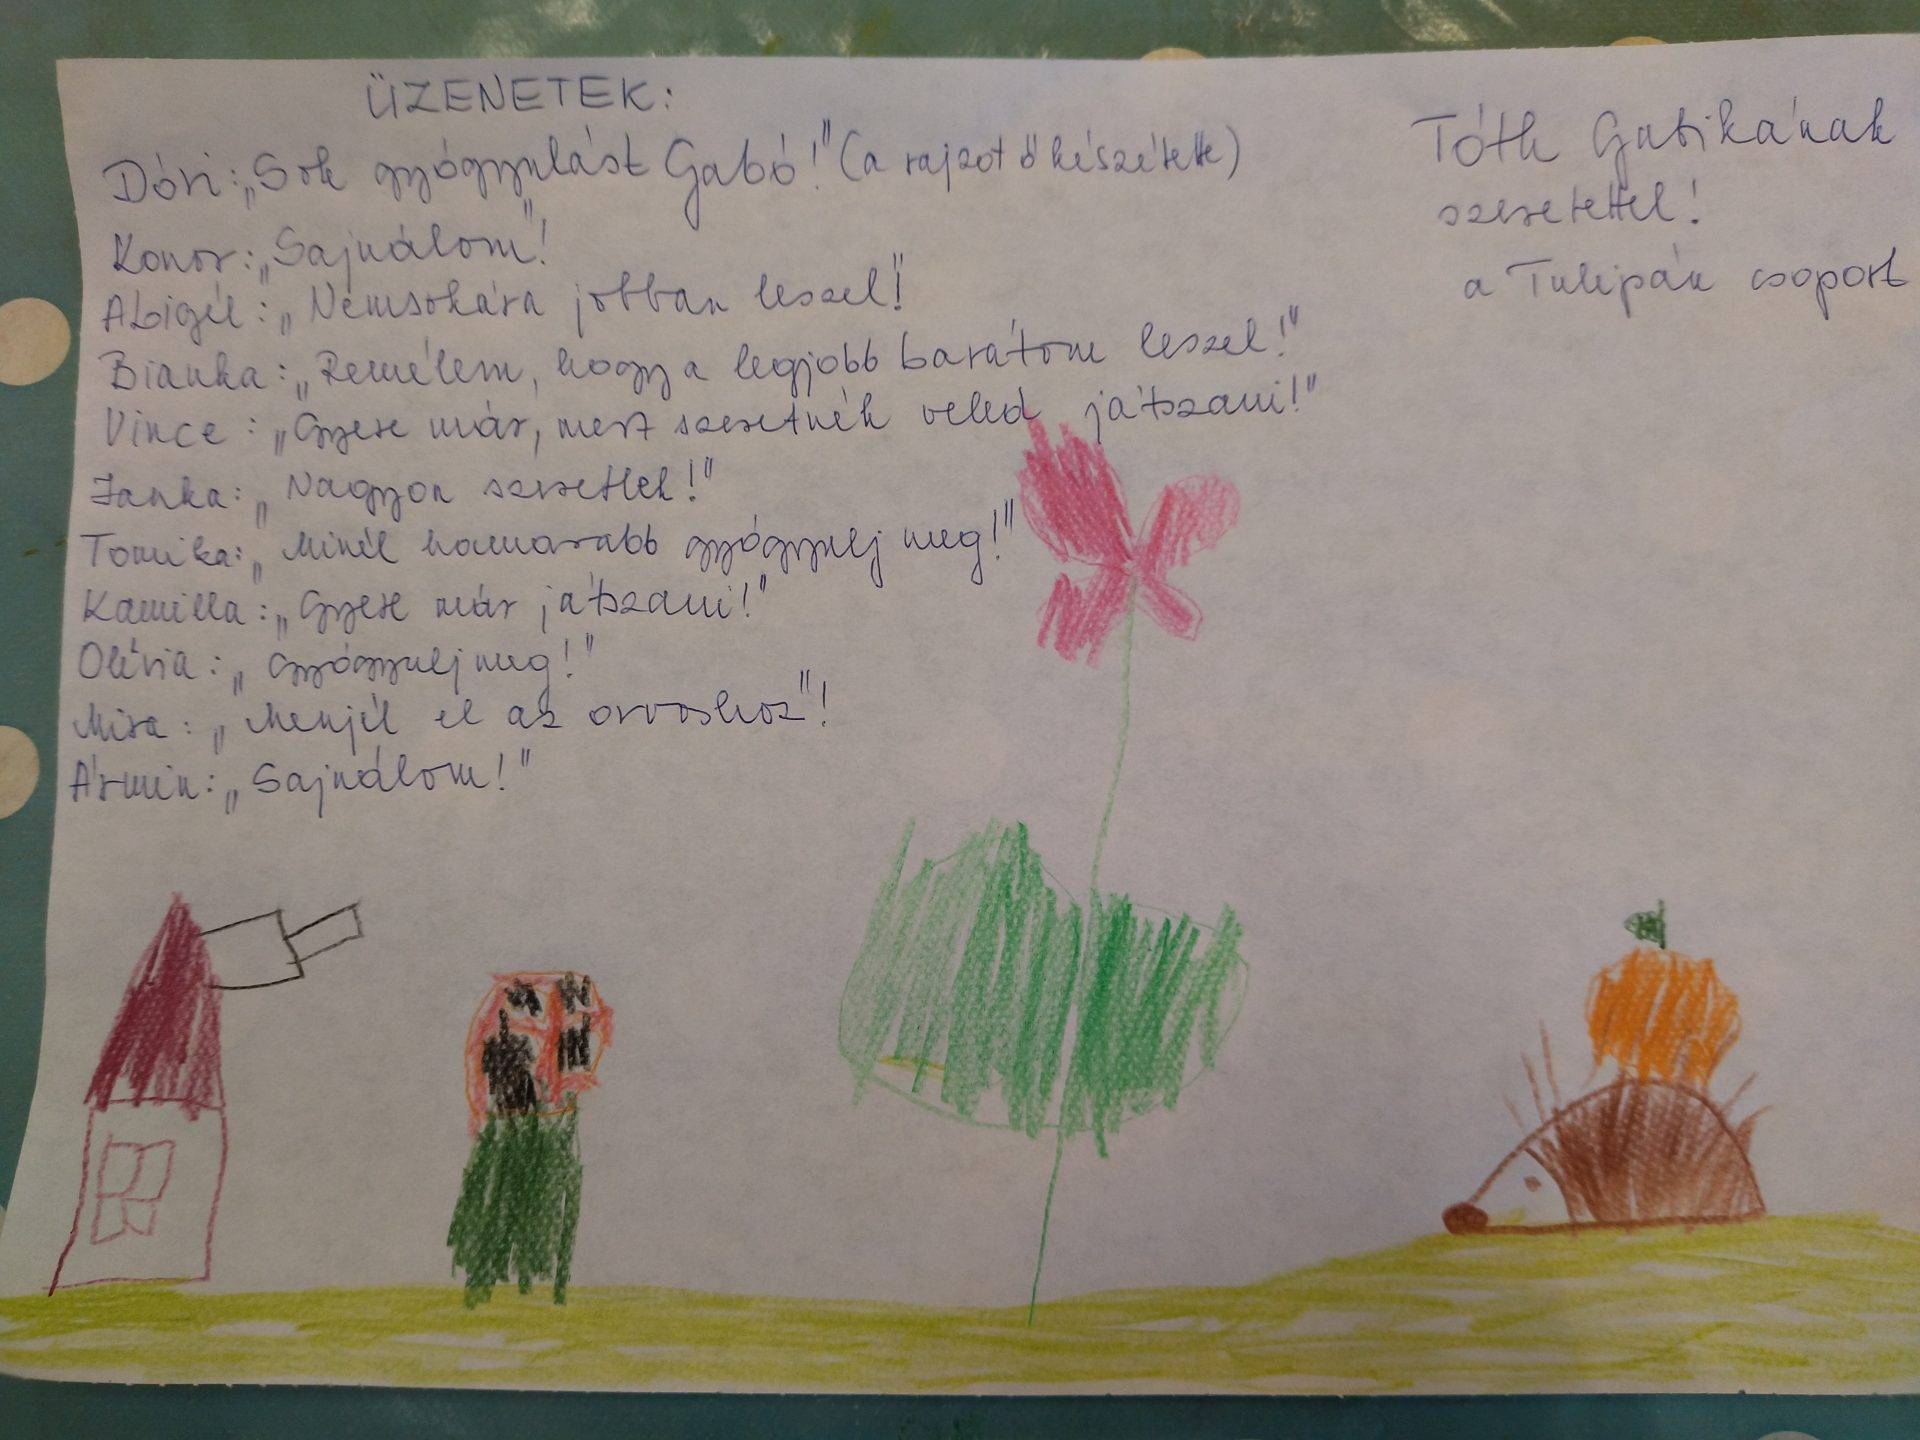 ÜZENETEK:
Dóri: „Sok gyógyulást Gabó!" (a rajzot ő készítette)
Konor: „Sajnálom"!
Abigél: „Nemsokára jobban leszel!"
Bianka: „Remélem, hogy a legjobb barátom leszel!"
Vince: „Gyere már, mert szeretnék veled játszani!"
Janka: „Nagyon szeretlek!"
Tomika: „Minél hamarabb gyógyulj meg!"
Kamilla: „Gyere már játszani!"
Olívia: „Gyógyulj meg!"
Mira: „Menjél el az orvoshoz"!
Ármin: „Sajnálom!"
Tóth Gabikának
szeretettel!
a Tulipán csoport